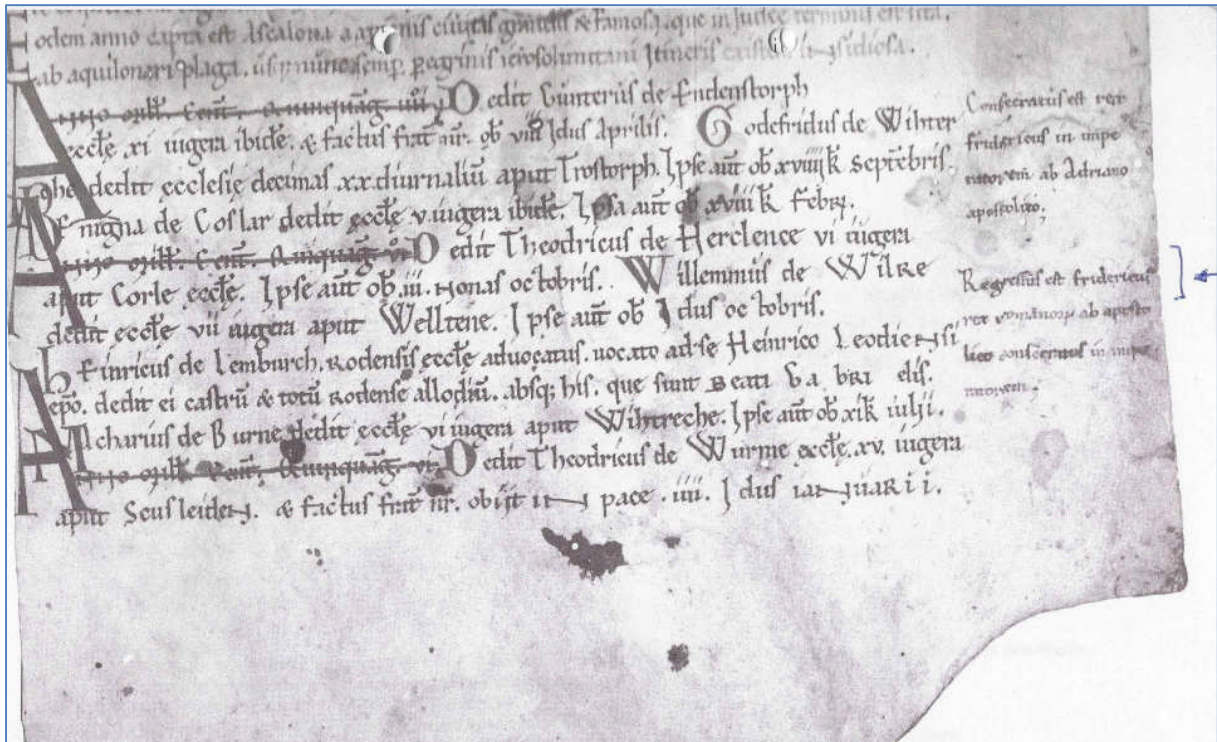 odem anno capta est Ascalona a xpianis ciuitas grandis & famosa. que in Judee terminis est sita.
ab aquilonari plaga. usq; nunc semp peregrinis ierosolimitani Itineris insidiosa.
Anno mill. Cent. Quinquag. iiii. Dedit Gunterus de Endenstorph
eccle xi iugera ibide. & factus frat nr. ob viii Idus Aprilis. Godefridus de Wihter
ghe dedit ecclesie decimas xx diurnaliu aput Trostorph. Ipse aut ob xviiii k Septebris.
Benigna de Goslar dedit eccle v iugera ibide. Ipsa aut ob xviii k Febr.
Anno mill. Cent. Quinquag. v. Dedit Theodricus de Herclence vi iugera
aput Corle eccle. Ipse aut ob iii. Nonas octobris. Willemmus de Wilre
dedit eccle vii iugera aput Welltene. Ipse aut ob Idus octobris.
heinricus de Lemburch. Rodensis eccle aduocatus. uocato ad se Heinrico Leodiensi
epo. dedit ei castru & totu Rodense allodiu. absq; his. que sunt Beati Gabrielis.
Acharius de Burne dedit eccle vi iugera aput Wihtreche. Ipse aut ob xi k iulii.
Anno mill. Cent. Quinquag. vi. Dedit Theodricus de Wurme eccle. xv. iugera
aput Scusleiden. & factus frat nr. obiit in pace. iiii. Idus ianuarii.
Consecratus est rex
fridericus in impe
ratorem ab Adriano
apostolico.
Regressus est fridericus
rex romanorum ab aposto
lico consecratus in impe
ratorem.